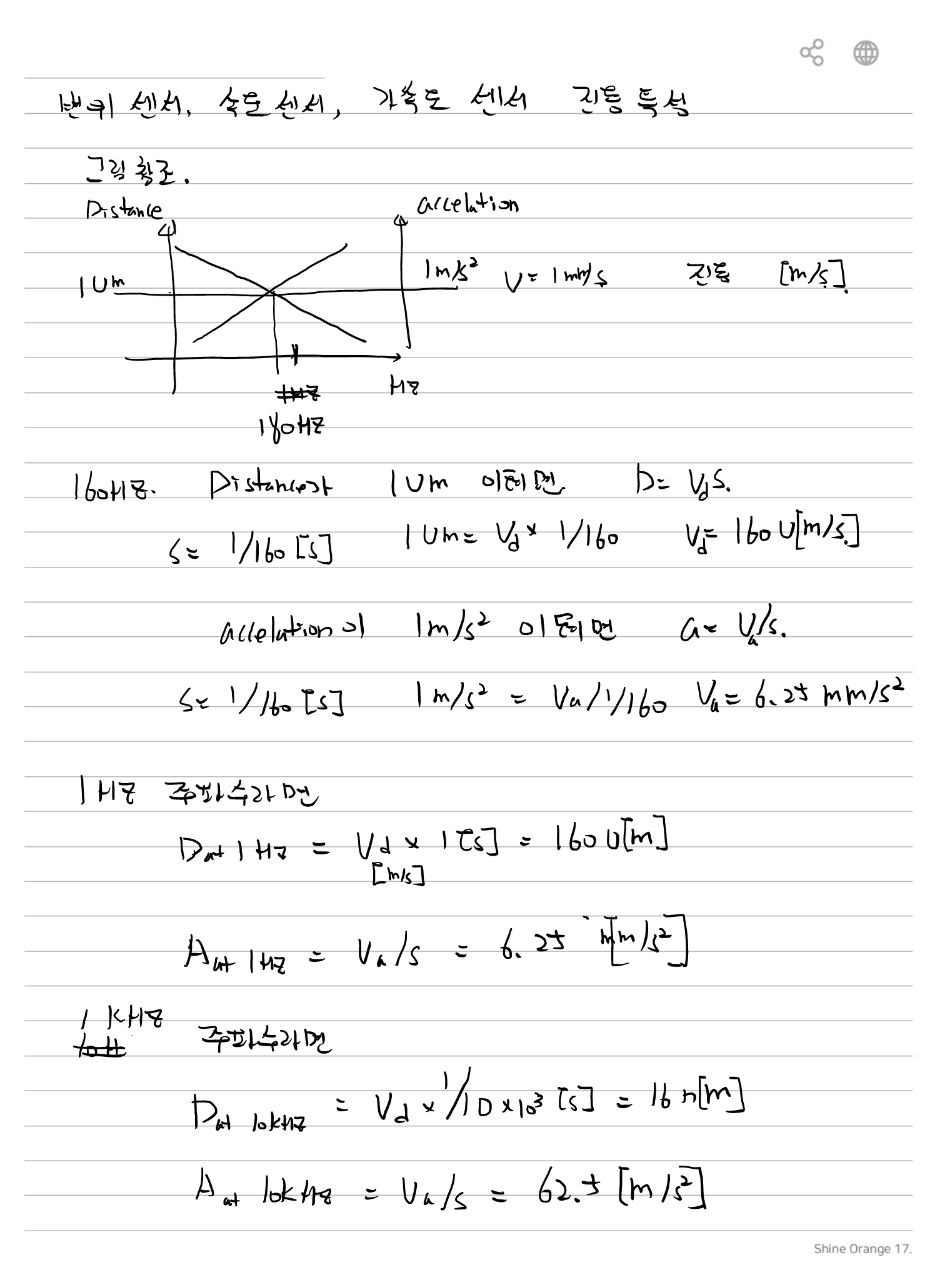 변위 센서, 속도 센서, 가속도 센서 진동 특성
그림 참조.
Distance
accelation
1Um
1m/s² V = 1mm/s 진동 [m/s].
Hz
160Hz
160Hz. Distance가 1Um 이라면 D = Vd s.
s = 1/160 [s] 1Um = Vd × 1/160 Vd = 160 U[m/s.]
accelation이 1m/s² 이라면 a = Va/s.
s = 1/160 [s] 1m/s² = Va/1/160 Va = 6.25 mm/s²
1Hz 주파수라면
D at 1Hz = Vd × 1[s] = 160 U[m]
[m/s]
A at 1Hz = Va/s = 6.25 m[m/s²]
1 KHz
주파수라면
D at 10kHz = Vd × 1/10×10³ [s] = 16n[m]
A at 10kHz = Va/s = 62.5 [m/s²]
Shine Orange 17.